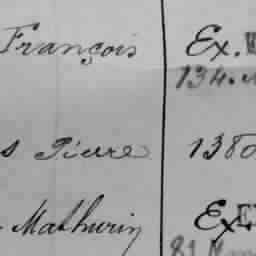 François Ex.
134.
s Pierre 1380
Mathurin Ex